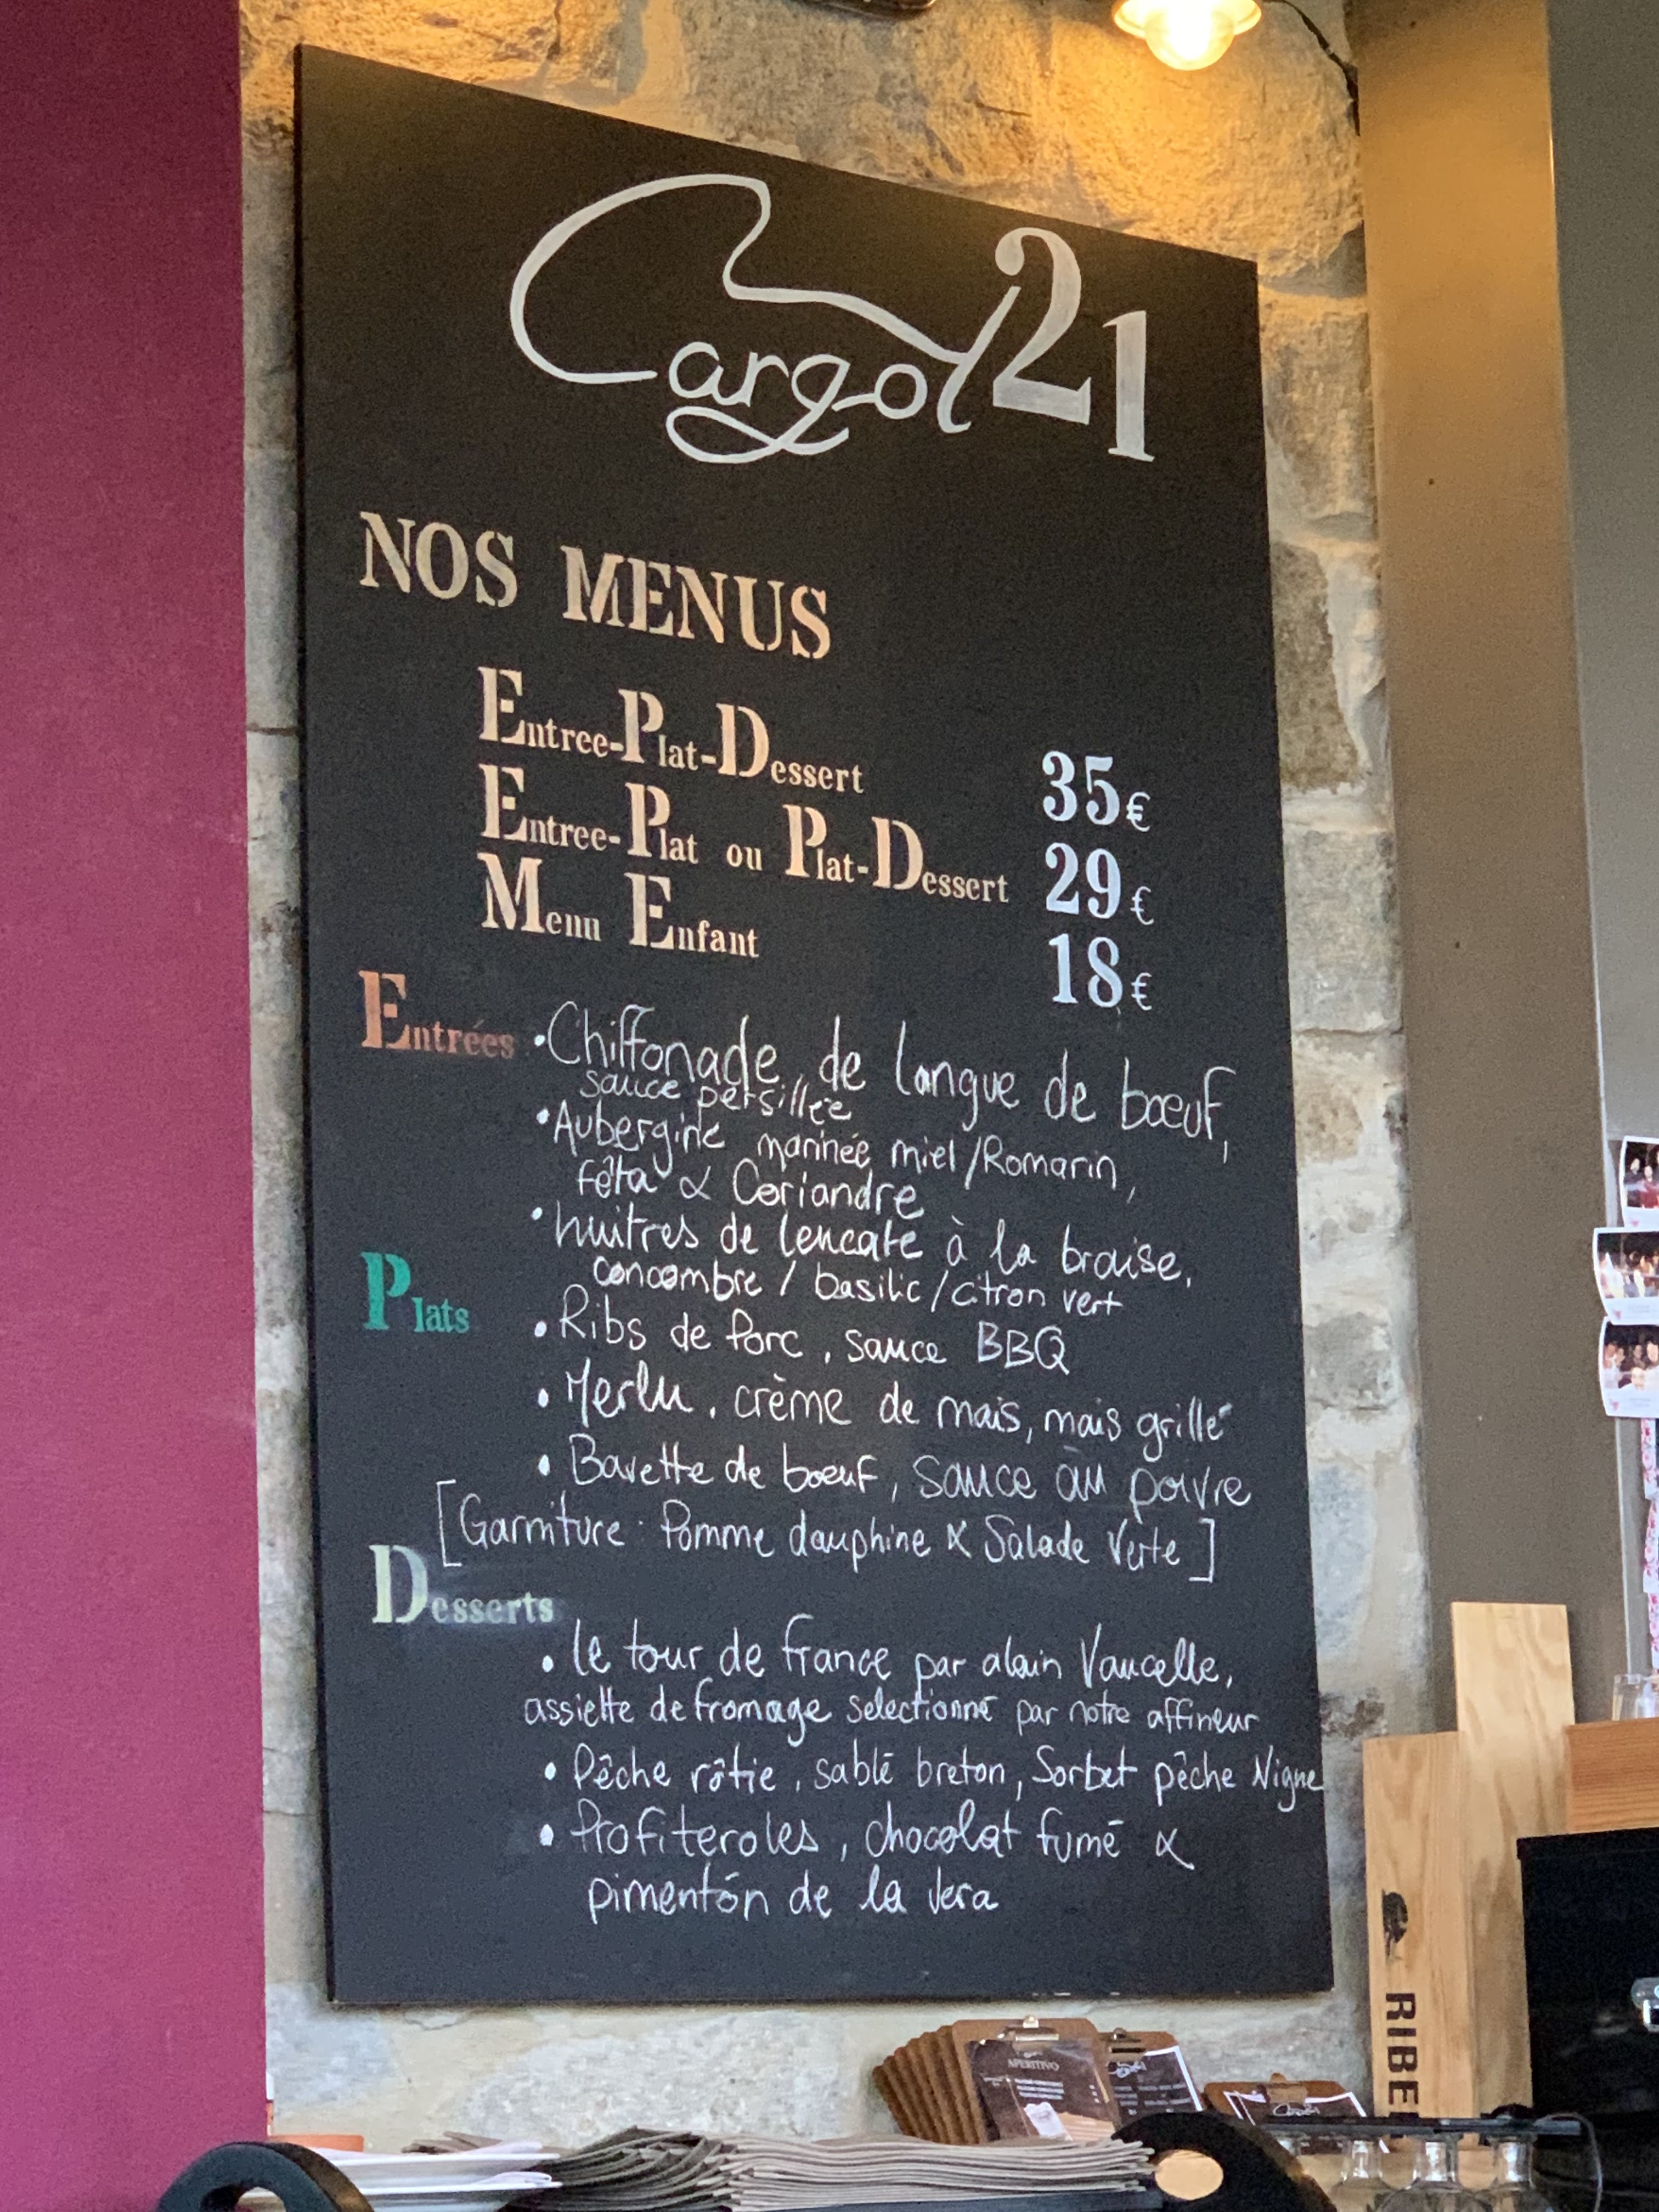 Cargol 21
NOS MENUS
Entree-Plat-Dessert 35€
Entree-Plat ou Plat-Dessert 29€
Menu Enfant 18€
Entrées
•Chiffonade de langue de bœuf,
sauce persillée
•Aubergine marinée miel/Romarin,
fêta & Coriandre
•huitres de leucate à la braise,
concombre / basilic / citron vert
Plats
•Ribs de Porc, sauce BBQ
•Merlu, crème de mais, mais grillé
•Bavette de bœuf, sauce au poivre
[Garniture : Pomme dauphine & Salade Verte]
Desserts
•le tour de france par alain Vaucelle,
assiette de fromage selectionné par notre affineur
•Pêche rôtie, sablé breton, Sorbet pêche Vigne
•Profiteroles, chocolat fumé &
pimentón de la Vera
RIBE
APERITIVO